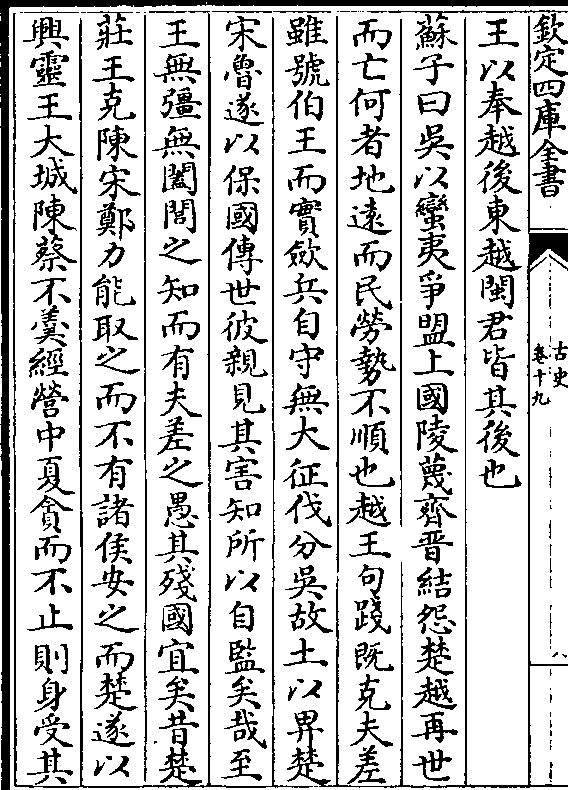 欽定四庫全書
古史
卷十九
八
王以奉越後東越閩君皆其後也
蘇子曰吳以蠻夷爭盟上國陵蔑齊晉結怨楚越再世
而亡何者地遠而民勞勢不順也越王句踐既克夫差
雖號伯王而實斂兵自守無大征伐分吳故土以畀楚
宋魯遂以保國傳世彼親見其害知所以自監矣哉至
王無彊無闔閭之知而有夫差之愚其殘國宜矣昔楚
莊王克陳宋鄭力能取之而不有諸侯安之而楚遂以
興靈王大城陳蔡不羮經營中夏貪而不止則身受其